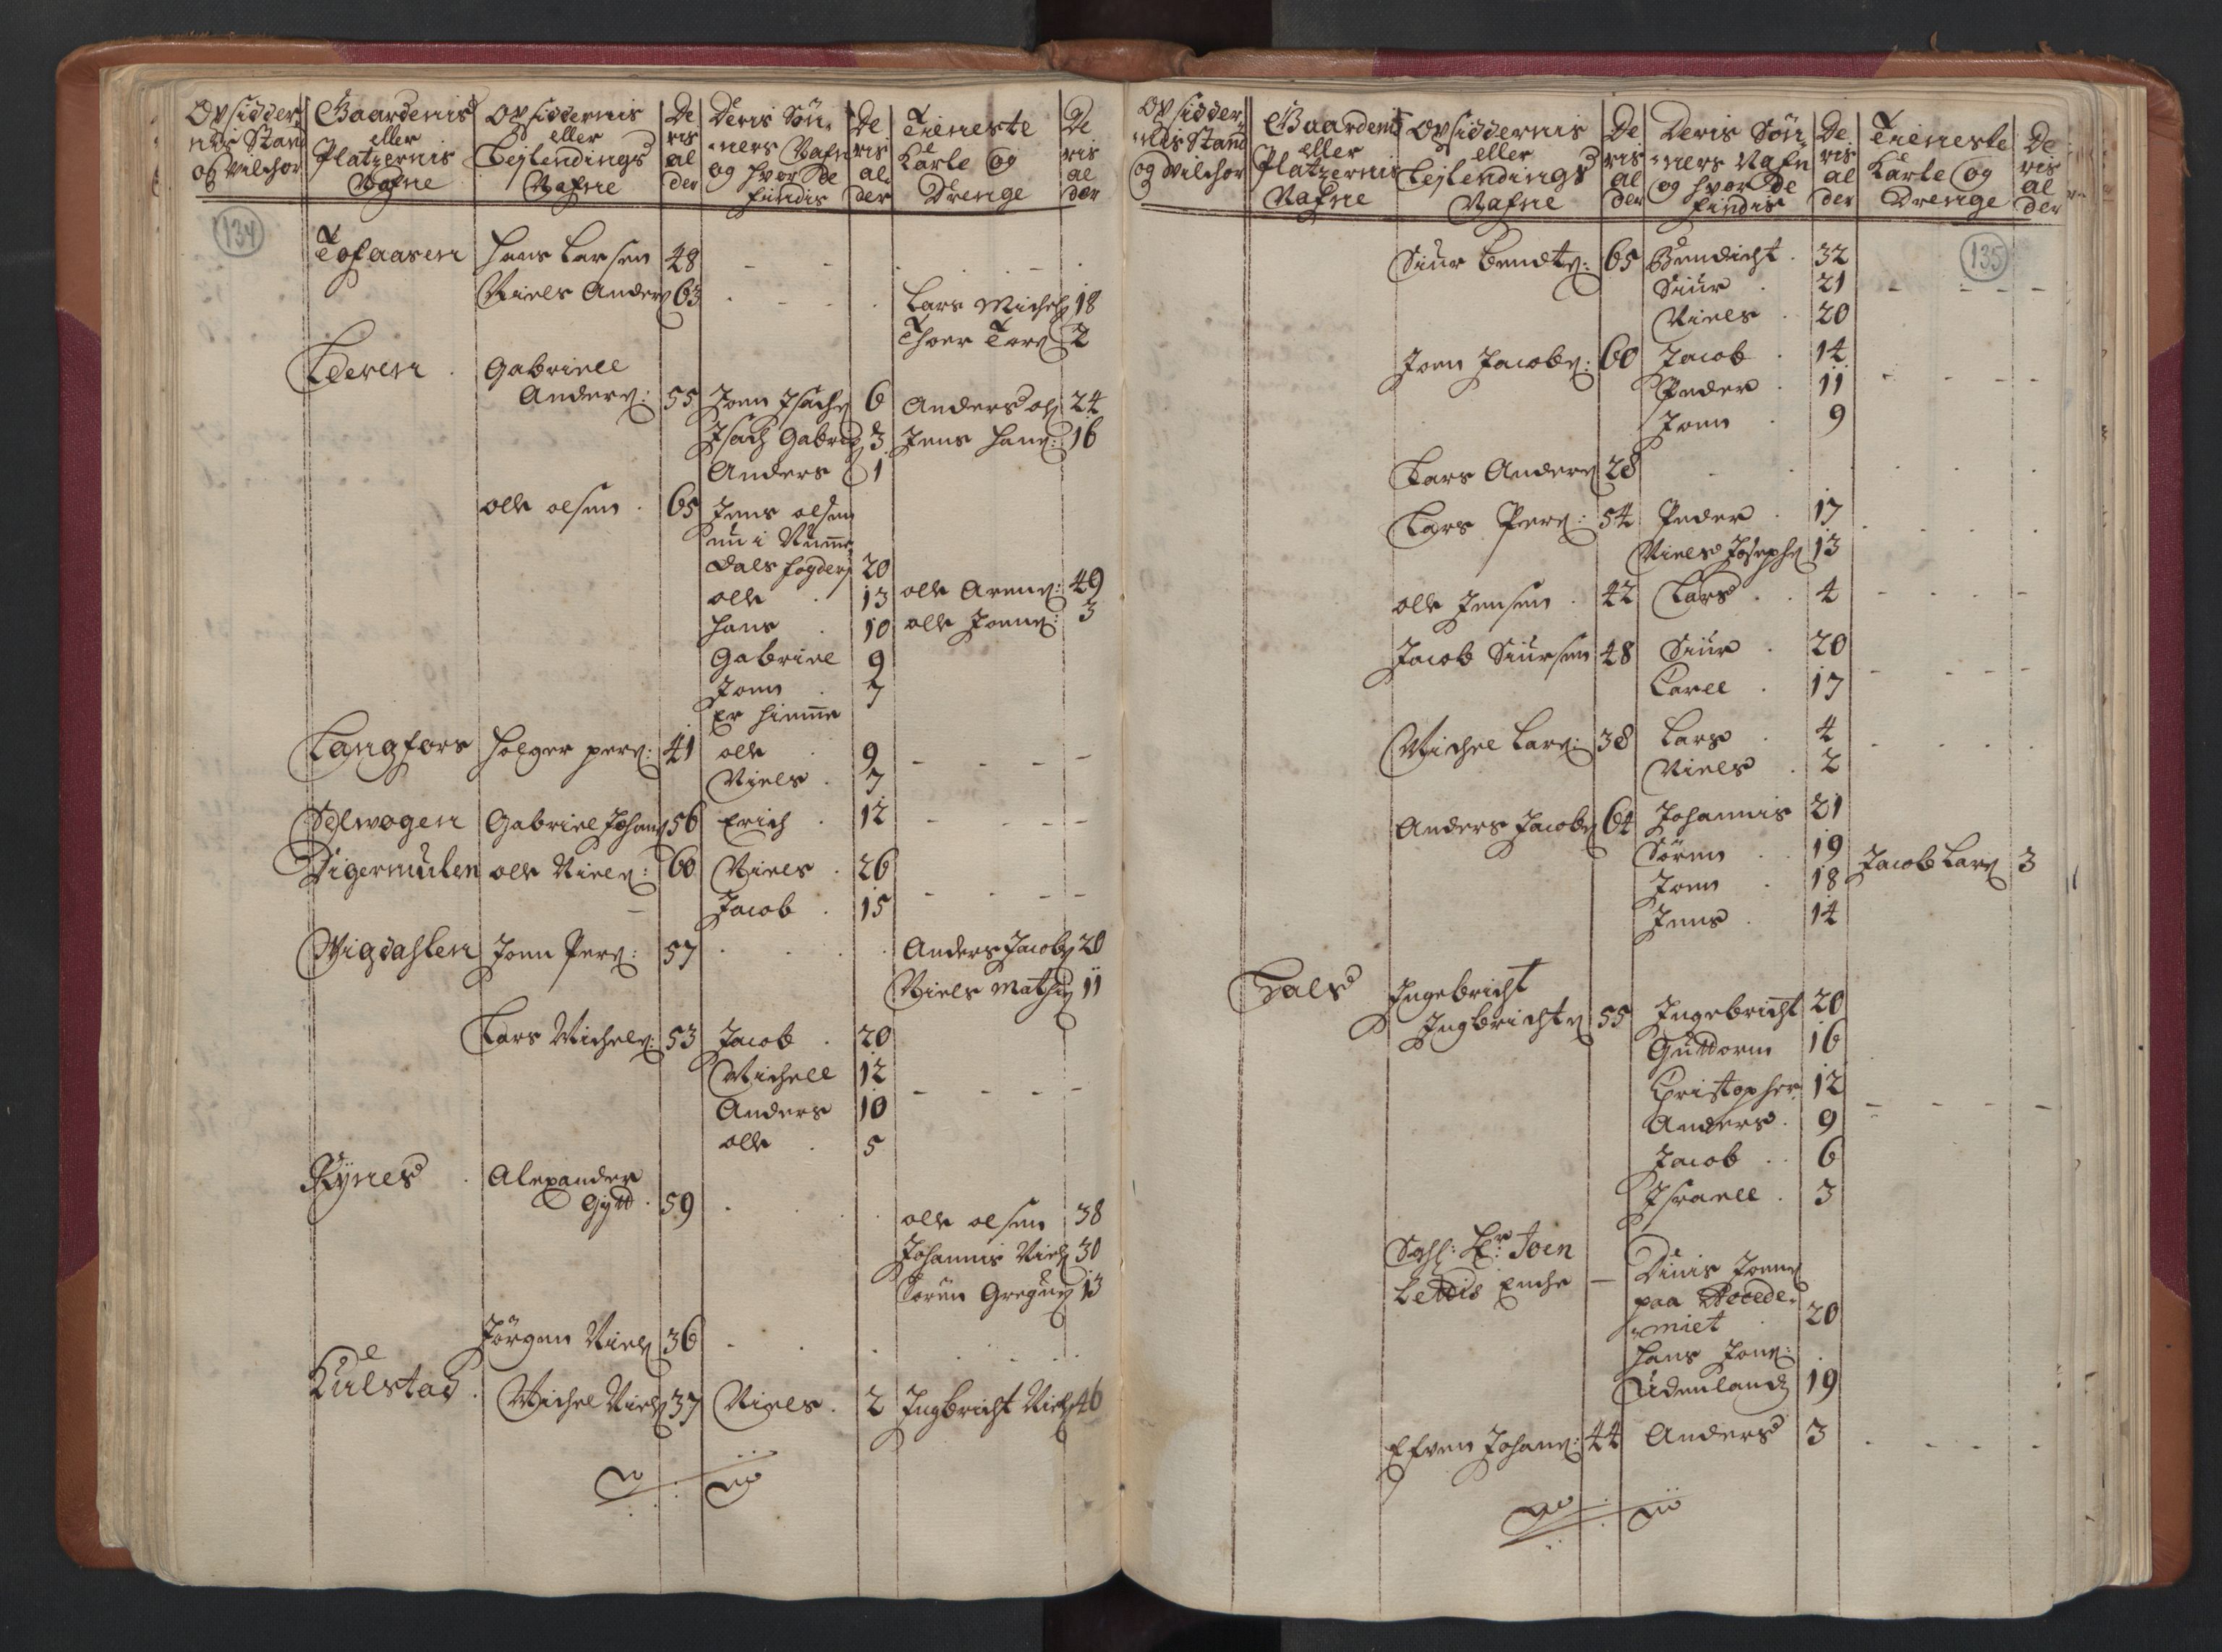 Opsidder
nes Stand
og Vilchor
Gaardenis
eller
Platzernis
Nafne
Opsiddernis
eller
Lejlendings
Nafne
De
ris
al
der
Deris Søn
ners Nafn
og hvor de
findis
De
ris
al
der
Tieneste
Karle og
Drenge
De
ris
al
der
134
Tofaasen Hans Larsen 48 - -
Niels Anders 63 Lars Michels 18
Thoer Tors 2
Ederen Gabriell
Anders: 55 Joen Isachs 6 Anders Ols 24
Isach Gabriels 3 Jens Hans: 16
Anders 1
Olle Olsen 65 Jens Olsen
nu i Numme
dals fogderj 20
Olle 13 Olle Arens: 49
Hans 10 Olle Joens: 3
Gabriel 9
Joen 7
Er hiemme
Langfors Holger Pers: 41 Olle 9 - - - -
Niels 7
Selwogen Gabriel Johans 56 Erich 12 - - - -
Digermulen Olle Niels: 60 Niels 26
Jacob 15 - - - -
Wigdahlen Joen Pers: 57 Anders Jacobs 20
Niels Mathis 11
Lars Michels: 53 Jacob 20
Michell 12
Anders 10 - - - -
Olle 5
Rynes Alexander
Gytt 59 Olle Olsen 38
Johannis Niels 30
Søren Gregus 13
Jørgen Niels 36
Kulstad Michel Niels 37 Niels 2 Ingbricht Niels 46
Opsidder
nes Stand
og Vilchor
Gaardenis
eller
Platzernis
Nafne
Opsiddernis
eller
Lejlendings
Nafne
De
ris
al
der
Deris Søn
ners Nafn
og hvor de
findis
De
ris
al
der
Tieneste
Karle og
Drenge
De
ris
al
der
135
Siur Bendts: 65 Bendicht 32
Siur 21 - - - -
Niels 20
Joen Jacobs: 60 Jacob 14
Peder 11 - - - -
Joen 9
Lars Anders 28
Lars Pers: 54 Peder 17
Niels Josephs 13
Olle Jensen 42 Lars 4 - - - -
Jacob Siursen 48 Siur 20
Carell 17 - - - -
Michel Lars: 38 Lars 4
Niels 2
Anders Jacobs 64 Johannis 21
Søren 19
Joen 18 Jacob Lars 3
Jens 14
Dals Ingebricht
Ingbrichts 55 Ingebricht 20
Guttorm 16
Christopher 12
Anders 9 - - - -
Jacob 6
Israell 3
Sahl: Hr: Joen
Lettis Enche — Dinis Joens
paa
miet 20
Hans Jons:
Udenlands 19
Efven Johans: 44 Anders 3 - - - -